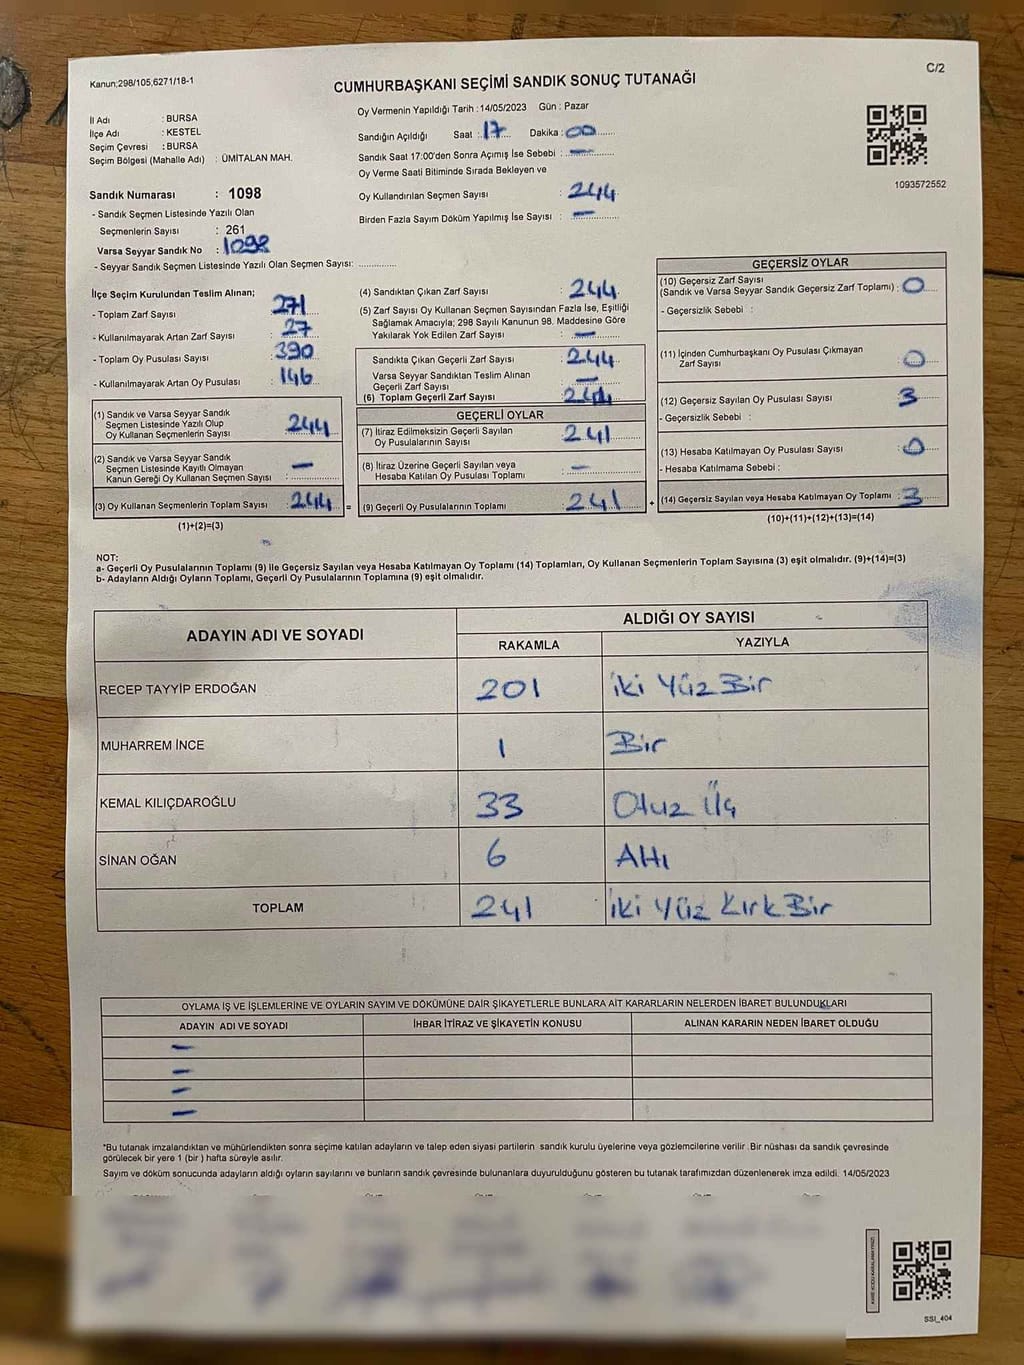 Kanun;298/105,6271/18-1
C/2
CUMHURBAŞKANI SEÇİMİ SANDIK SONUÇ TUTANAĞI
Oy Vermenin Yapıldığı Tarih : 14/05/2023 Gün : Pazar
İl Adı : BURSA
İlçe Adı : KESTEL
Seçim Çevresi : BURSA
Seçim Bölgesi (Mahalle Adı) : ÜMİTALAN MAH.
Sandığın Açıldığı Saat : 17 Dakika : 00
Sandık Saat 17:00'den Sonra Açımış İse Sebebi : —
Oy Verme Saati Bitiminde Sırada Bekleyen ve
Oy Kullandırılan Seçmen Sayısı : 244
Birden Fazla Sayım Döküm Yapılmış İse Sayısı : —
1093572552
Sandık Numarası : 1098
- Sandık Seçmen Listesinde Yazılı Olan
Seçmenlerin Sayısı : 261
Varsa Seyyar Sandık No : 1098
- Seyyar Sandık Seçmen Listesinde Yazılı Olan Seçmen Sayısı: ..............
İlçe Seçim Kurulundan Teslim Alınan;
- Toplam Zarf Sayısı : 271
- Kullanılmayarak Artan Zarf Sayısı : 27
- Toplam Oy Pusulası Sayısı : 390
- Kullanılmayarak Artan Oy Pusulası : 146
(1) Sandık ve Varsa Seyyar Sandık
Seçmen Listesinde Yazılı Olup
Oy Kullanan Seçmenlerin Sayısı : 244
(2) Sandık ve Varsa Seyyar Sandık
Seçmen Listesinde Kayıtlı Olmayan
Kanun Gereği Oy Kullanan Seçmen Sayısı : —
(3) Oy Kullanan Seçmenlerin Toplam Sayısı : 244 =
(1)+(2)=(3)
(4) Sandıktan Çıkan Zarf Sayısı : 244
(5) Zarf Sayısı Oy Kullanan Seçmen Sayısından Fazla İse, Eşitliği
Sağlamak Amacıyla; 298 Sayılı Kanunun 98. Maddesine Göre
Yakılarak Yok Edilen Zarf Sayısı : —
Sandıkta Çıkan Geçerli Zarf Sayısı : 244
Varsa Seyyar Sandıktan Teslim Alınan
Geçerli Zarf Sayısı : —
(6) Toplam Geçerli Zarf Sayısı : 244
GEÇERLİ OYLAR
(7) İtiraz Edilmeksizin Geçerli Sayılan
Oy Pusulalarının Sayısı : 241
(8) İtiraz Üzerine Geçerli Sayılan veya
Hesaba Katılan Oy Pusulası Toplamı : —
(9) Geçerli Oy Pusulalarının Toplamı : 241 +
GEÇERSİZ OYLAR
(10) Geçersiz Zarf Sayısı
(Sandık ve Varsa Seyyar Sandık Geçersiz Zarf Toplamı) : 0
- Geçersizlik Sebebi :
(11) İçinden Cumhurbaşkanı Oy Pusulası Çıkmayan
Zarf Sayısı : 0
(12) Geçersiz Sayılan Oy Pusulası Sayısı : 3
- Geçersizlik Sebebi :
(13) Hesaba Katılmayan Oy Pusulası Sayısı : 0
- Hesaba Katılmama Sebebi :
(14) Geçersiz Sayılan veya Hesaba Katılmayan Oy Toplamı : 3
(10)+(11)+(12)+(13)=(14)
NOT:
a- Geçerli Oy Pusulalarının Toplamı (9) ile Geçersiz Sayılan veya Hesaba Katılmayan Oy Toplamı (14) Toplamları, Oy Kullanan Seçmenlerin Toplam Sayısına (3) eşit olmalıdır. (9)+(14)=(3)
b- Adayların Aldığı Oyların Toplamı, Geçerli Oy Pusulalarının Toplamına (9) eşit olmalıdır.
ADAYIN ADI VE SOYADI ALDIĞI OY SAYISI
RAKAMLA YAZIYLA
RECEP TAYYİP ERDOĞAN 201 İki Yüz Bir
MUHARREM İNCE 1 Bir
KEMAL KILIÇDAROĞLU 33 Otuz Üç
SİNAN OĞAN 6 Altı
TOPLAM 241 İki Yüz Kırk Bir
OYLAMA İŞ VE İŞLEMLERİNE VE OYLARIN SAYIM VE DÖKÜMÜNE DAİR ŞİKAYETLERLE BUNLARA AİT KARARLARIN NELERDEN İBARET BULUNDUKLARI
ADAYIN ADI VE SOYADI İHBAR İTİRAZ VE ŞİKAYETİN KONUSU ALINAN KARARIN NEDEN İBARET OLDUĞU
—
—
—
—
*Bu tutanak imzalandıktan ve mühürlendikten sonra seçime katılan adayların ve talep eden siyasi partilerin sandık kurulu üyelerine veya gözlemcilerine verilir .Bir nüshası da sandık çevresinde
görülecek bir yere 1 (bir ) hafta süreyle asılır.
Sayım ve döküm sonucunda adayların aldığı oyların sayılarını ve bunların sandık çevresinde bulunanlara duyurulduğunu gösteren bu tutanak tarafımızdan düzenlenerek imza edildi. 14/05/2023
KARE KODU KARALAMAYINIZ!
SSI_404